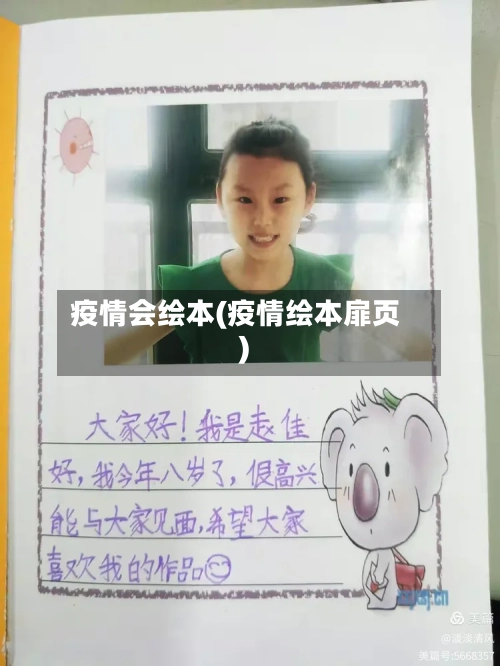 疫情会绘本(疫情绘本扉页
)
大家好！我是赵佳
好,我今年八岁了,很高兴
能与大家见面,希望大家
喜欢我的作品
美篇
@淡淡清风
美篇号:5668357